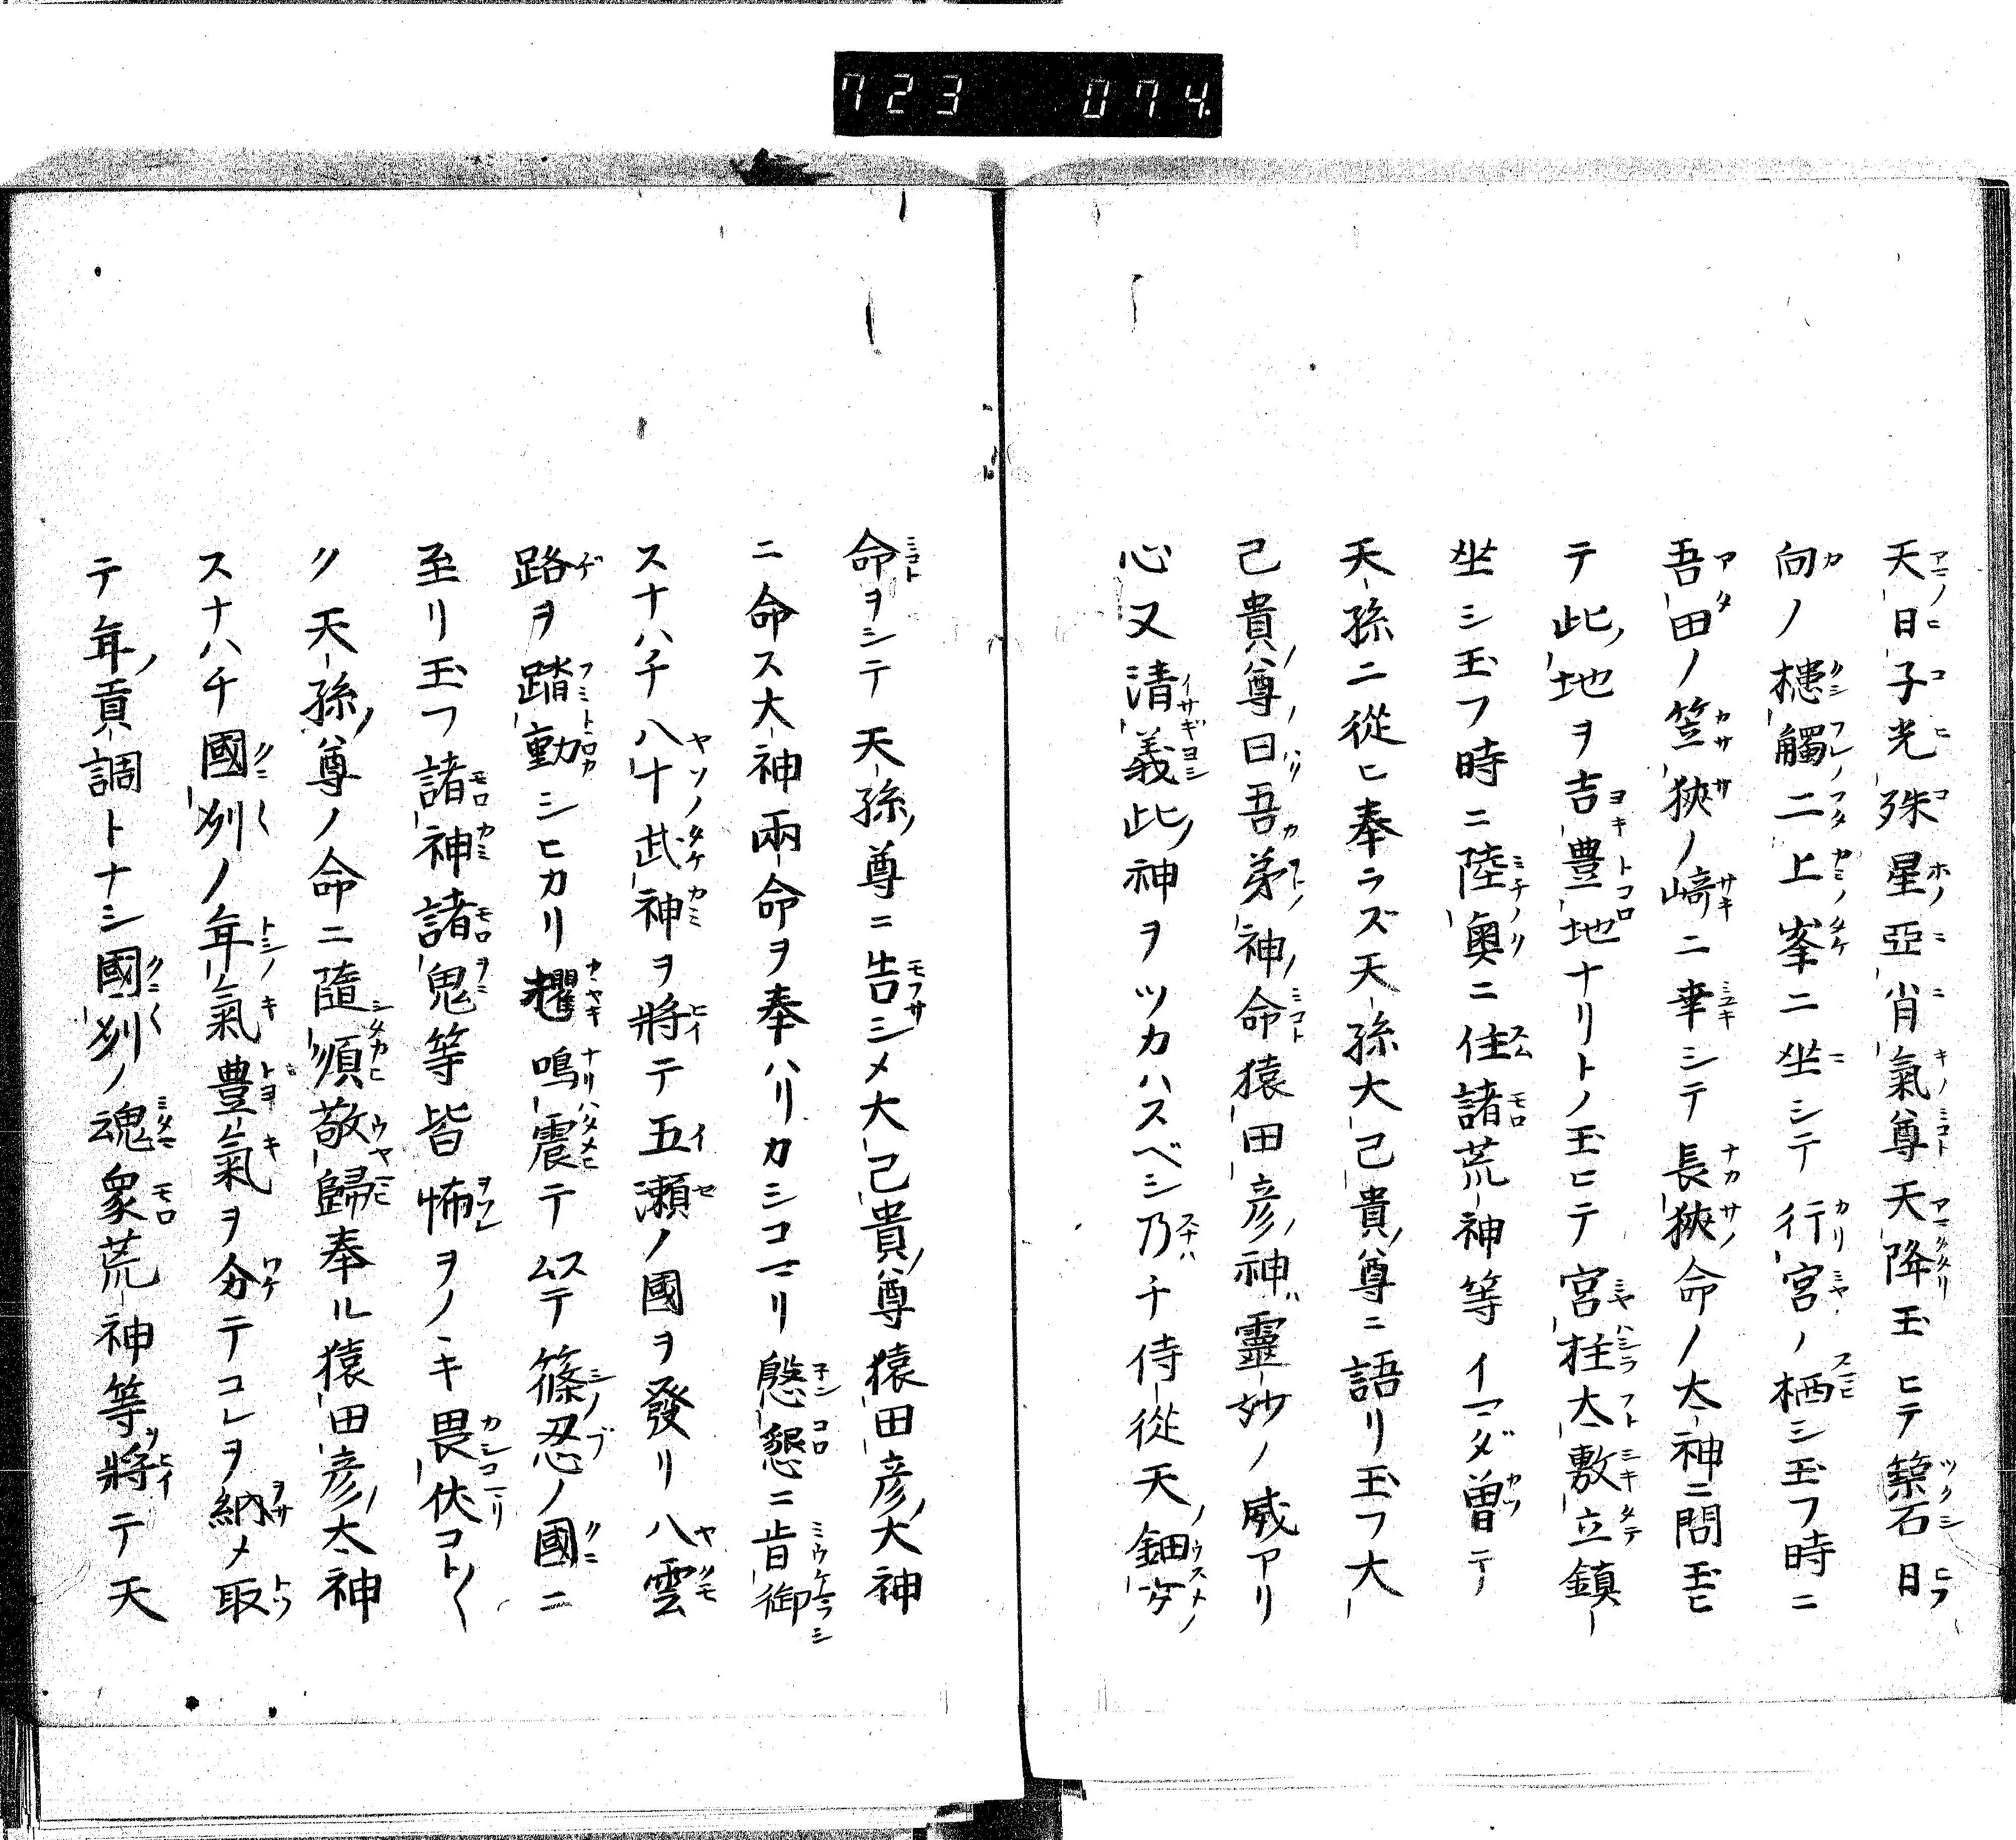 723 074.
天日子光殊星亞肖氣尊天降玉ヒテ築石日
向ノ槵觸二上峯ニ坐シテ行宮ノ栖シ玉フ時ニ
吾田ノ笠狹ノ﨑ニ幸シテ長狹命ノ太神ニ問玉ヒ
テ此地ヲ吉豊地ナリトノ玉ヒテ宮柱太敷立鎮
坐シ玉フ時ニ陸奥ニ住諸荒神等イマダ曽テ
天孫ニ從ヒ奉ラズ天孫大己貴尊ニ語リ玉フ大
己貴尊曰吾弟神命猿田彦神靈妙ノ威アリ
心又清義此神ヲツカハスベシ乃チ侍從天鈿女
命ヲシテ天孫尊ニ告シメ大己貴尊猿田彦大神
ニ命ス大神兩命ヲ奉ハリカシコマリ慇懇ニ肯御
スナハチ八十武神ヲ將テ五瀬ノ國ヲ發リ八雲
路ヲ踏動シヒカリ耀鳴震テ ステ篠忍ノ國ニ
至リ玉フ諸神諸鬼等皆怖ヲノヽキ畏伏コト〱
ク天孫尊ノ命ニ隨順敬歸奉ル猿田彦太神
スナハチ國列ノ年氣豊氣ヲ分テコレヲ納メ取
テ年貢調トナシ國列ノ魂衆荒神等將テ天